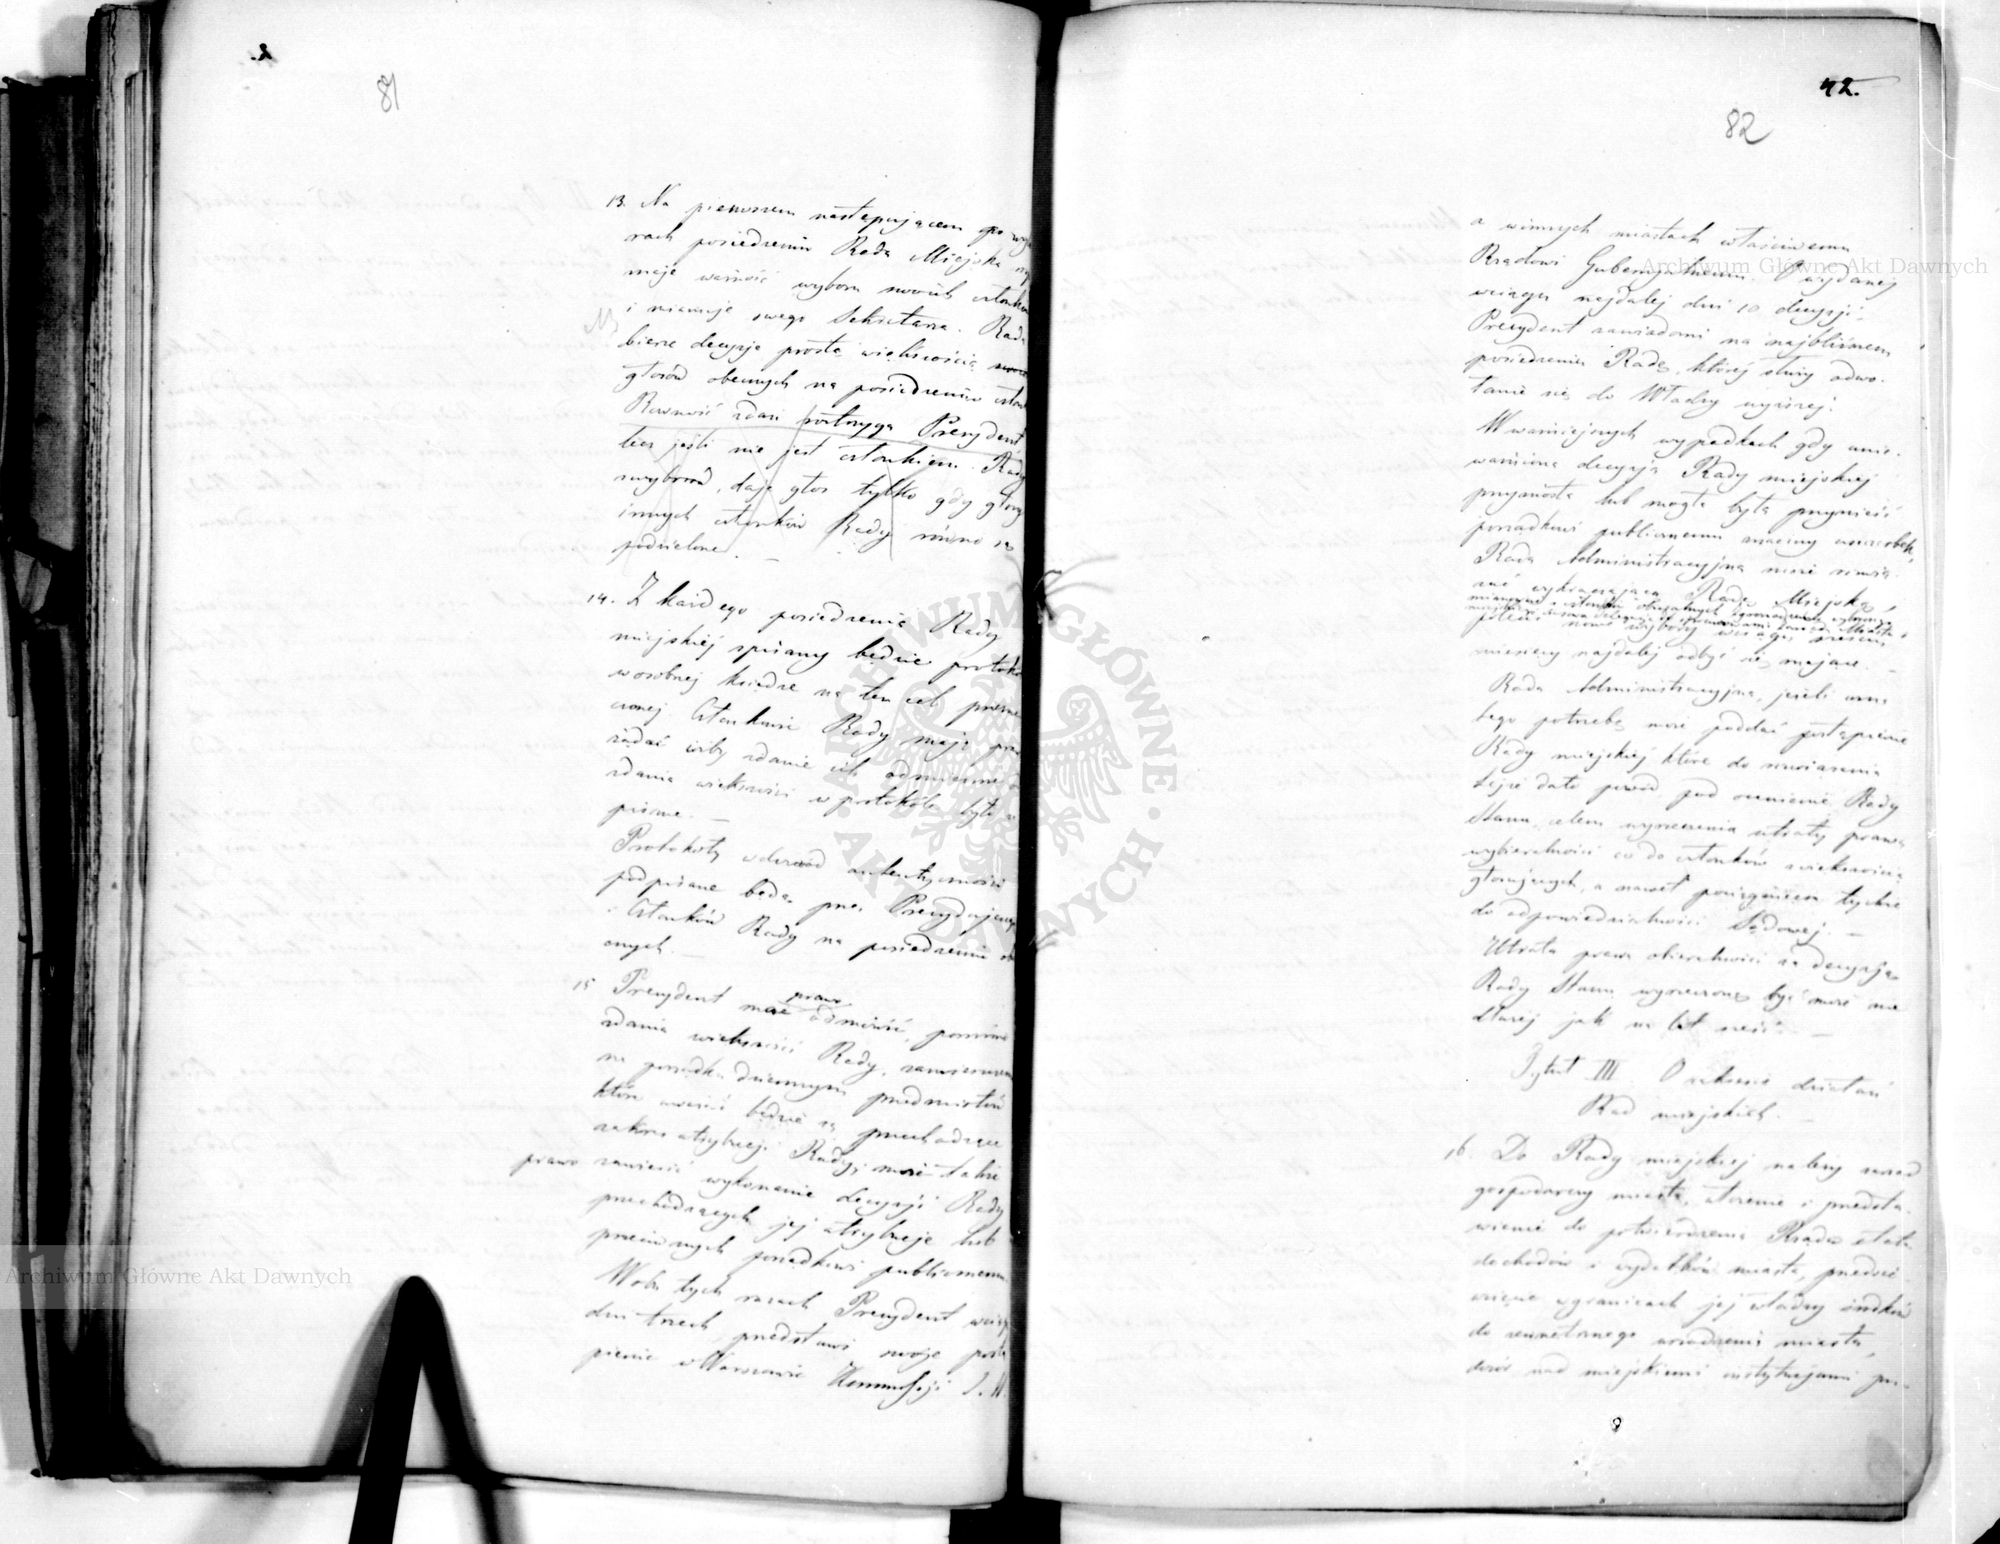 2.
81
13. Na pierwszem następującem po wybo
rach posiedzeniu Rada Miejska
maje ważność wyboru nowych członków
i mianuje swego Sekretarza. Rada
bierze decyzje prostą większością
głosów obecnych na posiedzeniu człon
Równość zdań rozstrzyga Prezydent,
lecz jeśli nie jest członkiem Rady
z wyborów, daje głos tylko gdy głosy
innych członków Rady równo są
podzielone. —
14. Z każdego posiedzenia Rady
miejskiéj spisany będzie protokó
w osobnej księdze na ten cel przezna
czonej Członkowie Rady mają pra
żądać iżby zdanie ich odmienne o
zdania większości w protokóle było
pisane. —
Protokoły w dowód autentyczności
podpisane będą przez Prezydującego
i Członków Rady na posiedzeniu ob
cnych. —
15 Prezydent ma prawo odmówić, pomimo
zdania większości Rady, zamieszczen
na porządku dziennym przedmiotów
które uważać będzie za przechodzące
zakres atrybucji Rady; może także
prawo zawiesić wykonanie decyzji Rady
przechodzących jej atrybucje lub
przeciwnych porządkowi publicznemu.
W obu tych razach Prezydent wciąg
dni trzech przedstawi swoje postą
pienie w Warszawie Kommissji
42.
82
a w innych miastach właściwemu
Rządowi Gubernjalnemu. O wydanej
wciągu najdalej dni 10 decyzji
Prezydent zawiadomi na najbliższem
posiedzeniu Radę, której służy odwo-
łanie się do Władzy wyższej.
W ważniejszych wypadkach gdy unie-
ważniona decyzja Rady miejskiej
przyniosła lub mogła była przynieść
porządkowi publicznemu znaczny uszczerbek,
Rada Administracyjna może rozwią-
zać wykraczającą Radę Miejską,
poleci nowe wybory wciągu sześciu
miesięcy najdalej odbyć się mające. —
Rada Administracyjna, jeżeli uzna
tego potrzebę może poddać postąpienie
Rady miejskiej które do rozwiązania
tejże dało powód pod ocenienie Rady
Stanu, celem wyrzeczenia utraty prawa
wybieralności co do członków z większością
głosujących, a nawet pociągnienia tychże
do odpowiedzialności Sądowej. —
Utrata prawa obieralności za decyzją
Rady Stanu wyrzeczoną być może nie
dłużej jak na lat sześć —
Tytuł III. O zakresie działań
Rad miejskich. —
16. Do Rady miejskiej należy zarząd
gospodarczy miasta, ułożenie i przedsta-
wienie do potwierdzenia Rządu etatu
dochodów i wydatków miasta, przedsię-
wzięcie w granicach jej władzy środków
do zewnętrznego urządzenia miasta,
dozór nad miejskiemi instytucjami pu-
Archiwum Główne Akt Dawnych
Archiwum Główne Akt Dawnych
ARCHIWUM GŁÓWNE · AKT DAWNYCH ·